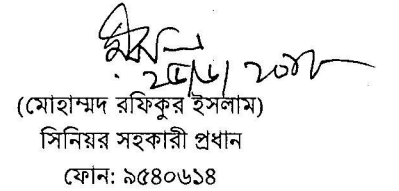 ২৫/৬/২০১৮
(মোহাম্মদ রফিকুর ইসলাম)
সিনিয়র সহকারী প্রধান
ফোন: ৯৫৪০৬১৪